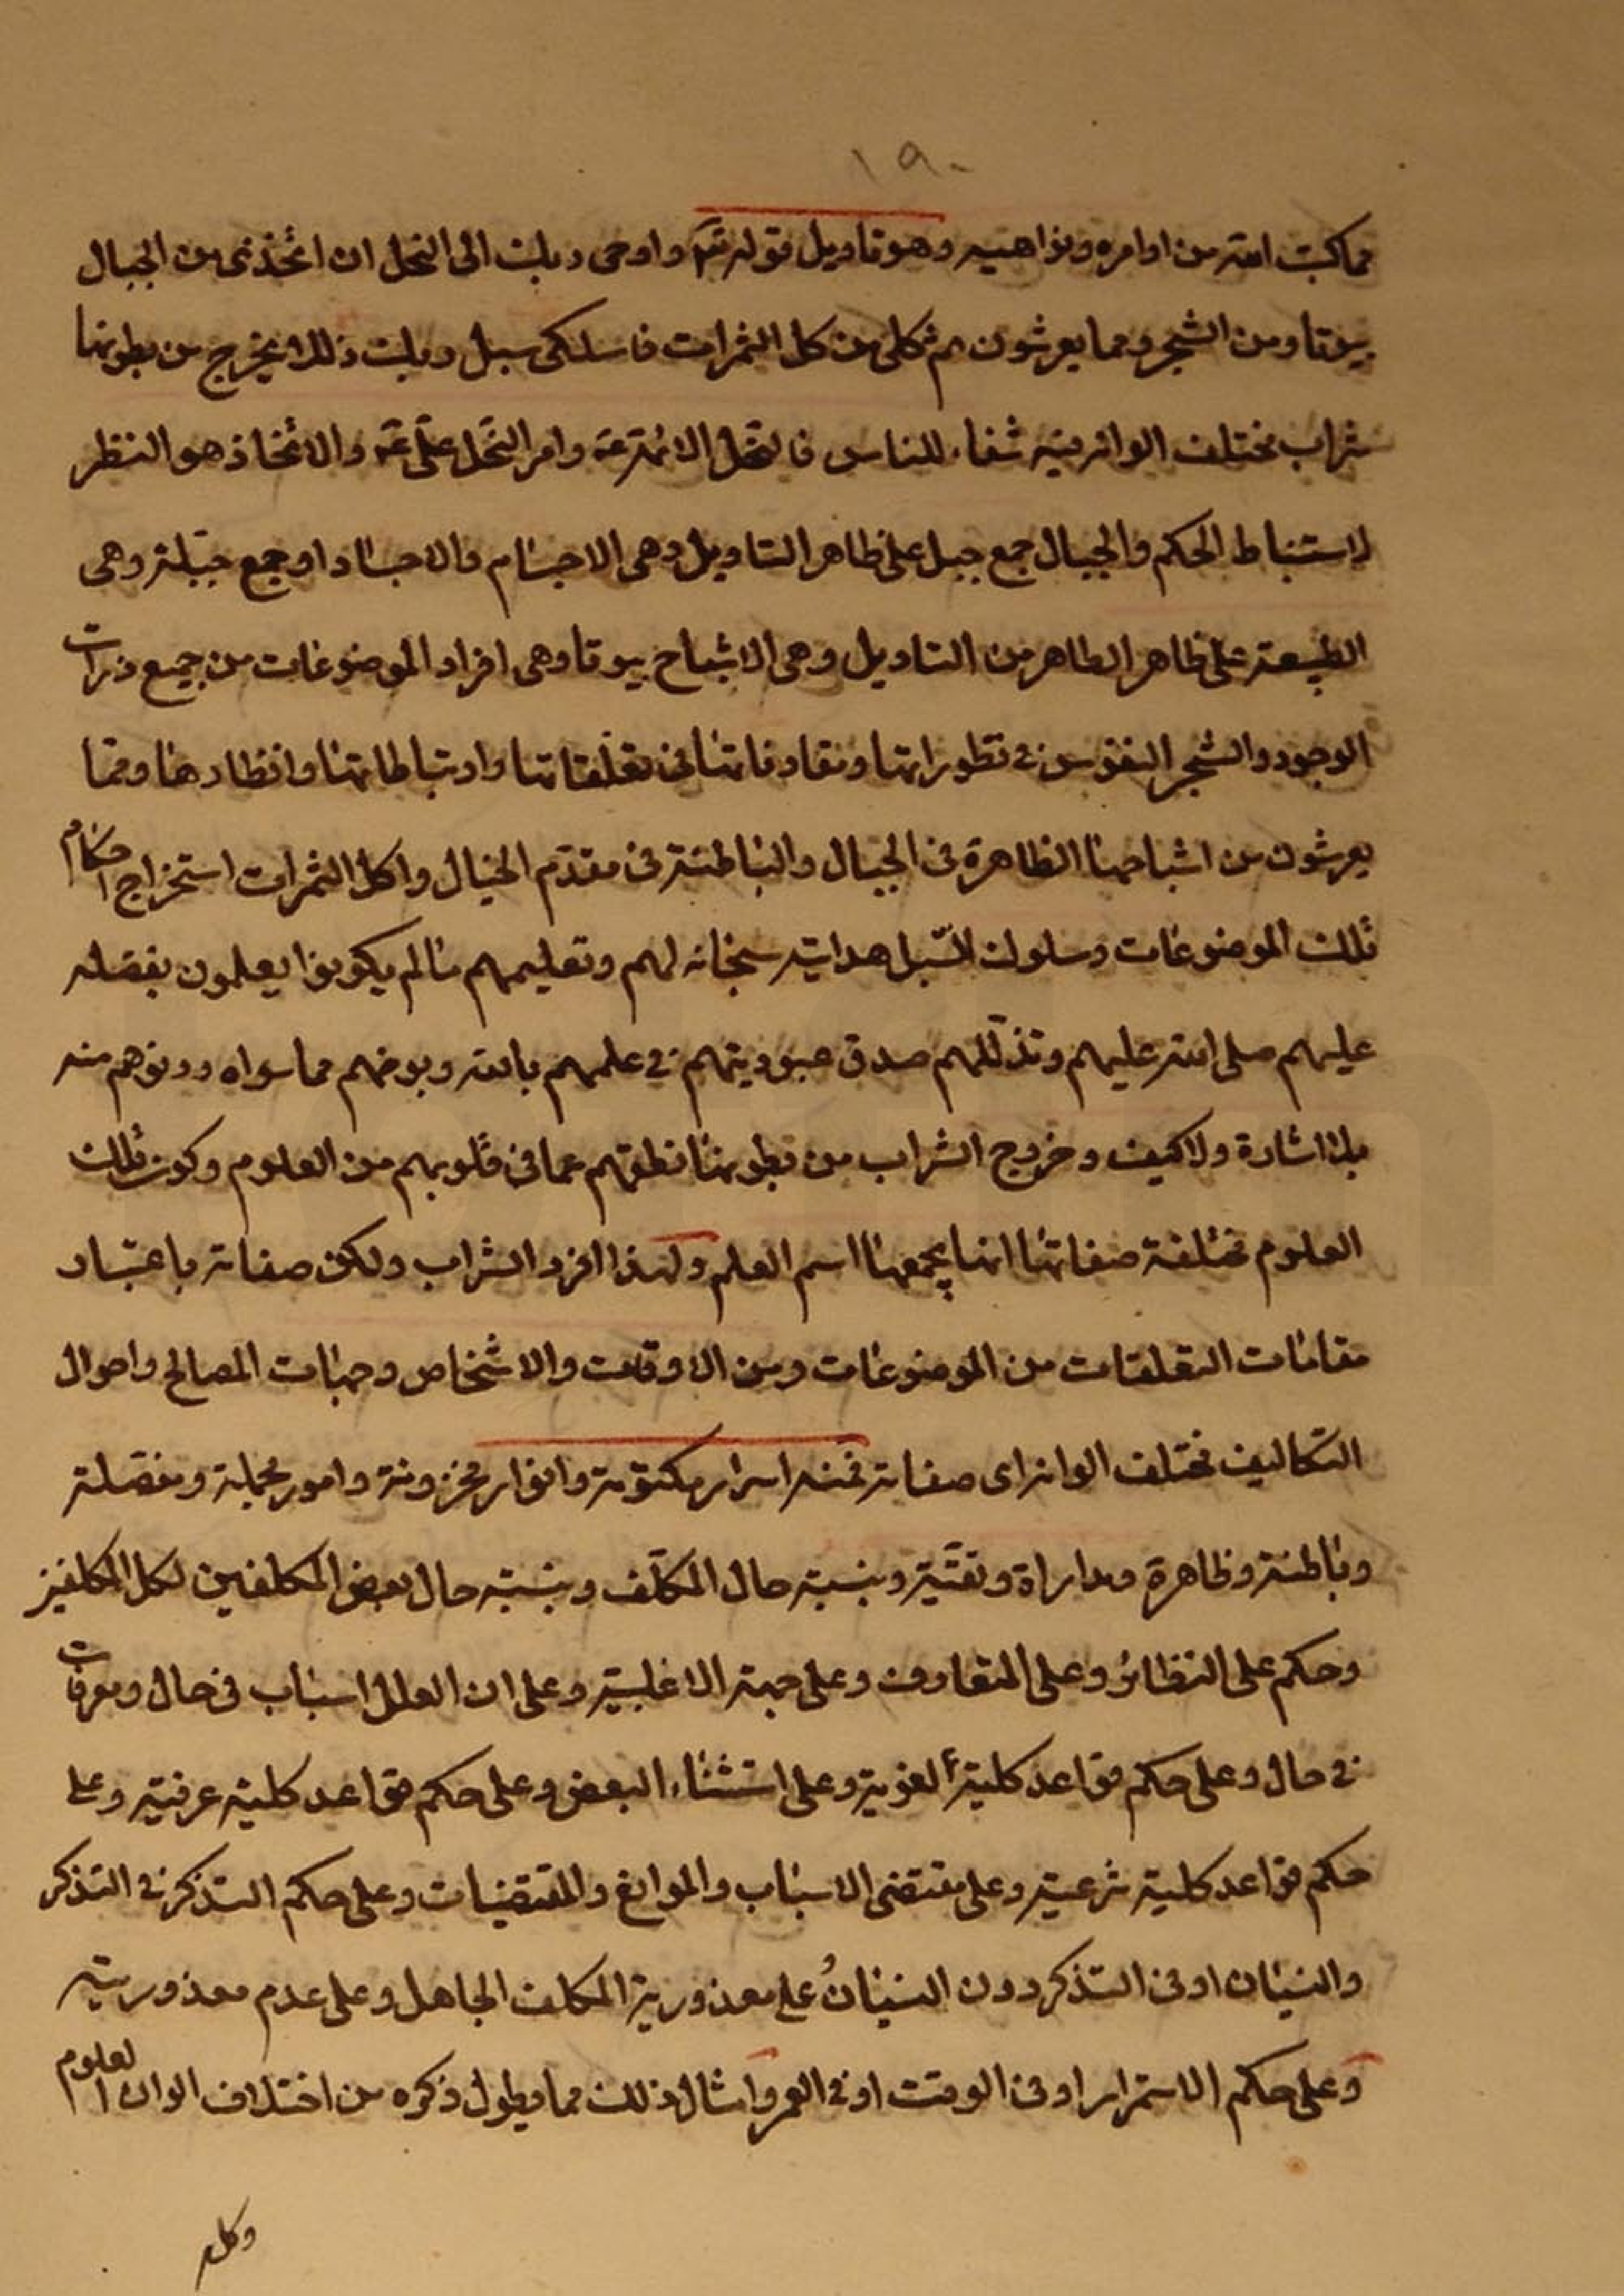 ١٩٠
مما كتب الله من اوامره ونواهيه وهو تاويل قوله تع واوحى ربك الى النحل ان اتخذى من الجبال
بيوتا ومن الشجر ومما يعرشون ثم كلى من كل الثمرات فاسلكى سبل ربك ذللا يخرج من بطونها
شراب مختلف الوانه فيه شفاء للناس فالنحل الائمة ع وامر النحل على ع والاتخاذ هو النظر
لاستنباط الحكم والجبال جمع جبل على ظاهر التاويل وهى الاجسام والاجساد او جمع جبلة وهى
الطبيعة على ظاهر الظاهر من التاويل وهى الاشباح بيوتا وهى افراد الموضوعات من جميع ذرات
الوجود والشجر النفوس فى تطوراتها وتعارفاتها فى تعلقاتها وارتباطاتها وانظارها ومما
يعرشون من اشباحها الظاهرة فى الجبال والباطنة فى مقدم الخيال واكل الثمرات استخراج احكام
تلك الموضوعات وسلوك السبل هدايته سبحانه لهم وتعليمهم ما لم يكونوا يعلمون بفضله
عليهم صلى الله عليهم وتذللهم صدق عبوديتهم فى علمهم بالله وبوضهم مما سواه ودنوهم منه
بلا اشارة ولا كيف وخروج الشراب من بطونها نطقهم عما فى قلوبهم من العلوم وكون تلك
العلوم مختلفة صفاتها انها يجمعها اسم العلم ولهذا افرد الشراب ولكن صفاته باعتبار
مقامات التعلقات من الموضوعات ومن الاوقات والاشخاص وجهات المصالح واحوال
التكاليف مختلف الوانه اى صفاته فمنه اسرار مكتومة وانوار مخزونة وامور مجملة ومفصلة
وباطنة وظاهرة ومداراة وتقية وبنسبة حال المكلف وبنسبة حال بعض المكلفين لكل المكلفين
وحكم على النظائر وعلى المتعارف وعلى جهة الاغلبية وعلى ان العلل اسباب فى حال ومعرفات
فى حال وعلى حكم قواعد كلية لغوية وعلى استثناء البعض وعلى حكم قواعد كلية عرفية وعلى
حكم قواعد كلية شرعية وعلى مقتضى الاسباب والموانع والمقتضيات وعلى حكم التذكر فى التذكر
والنسيان او فى التذكر دون النسيان على معذورية المكلف الجاهل وعلى عدم معذوريته
وعلى حكم الاستمرار او فى الوقت او فى العمر وامثال ذلك مما يطول ذكره من اختلاف الوان العلوم
وكل